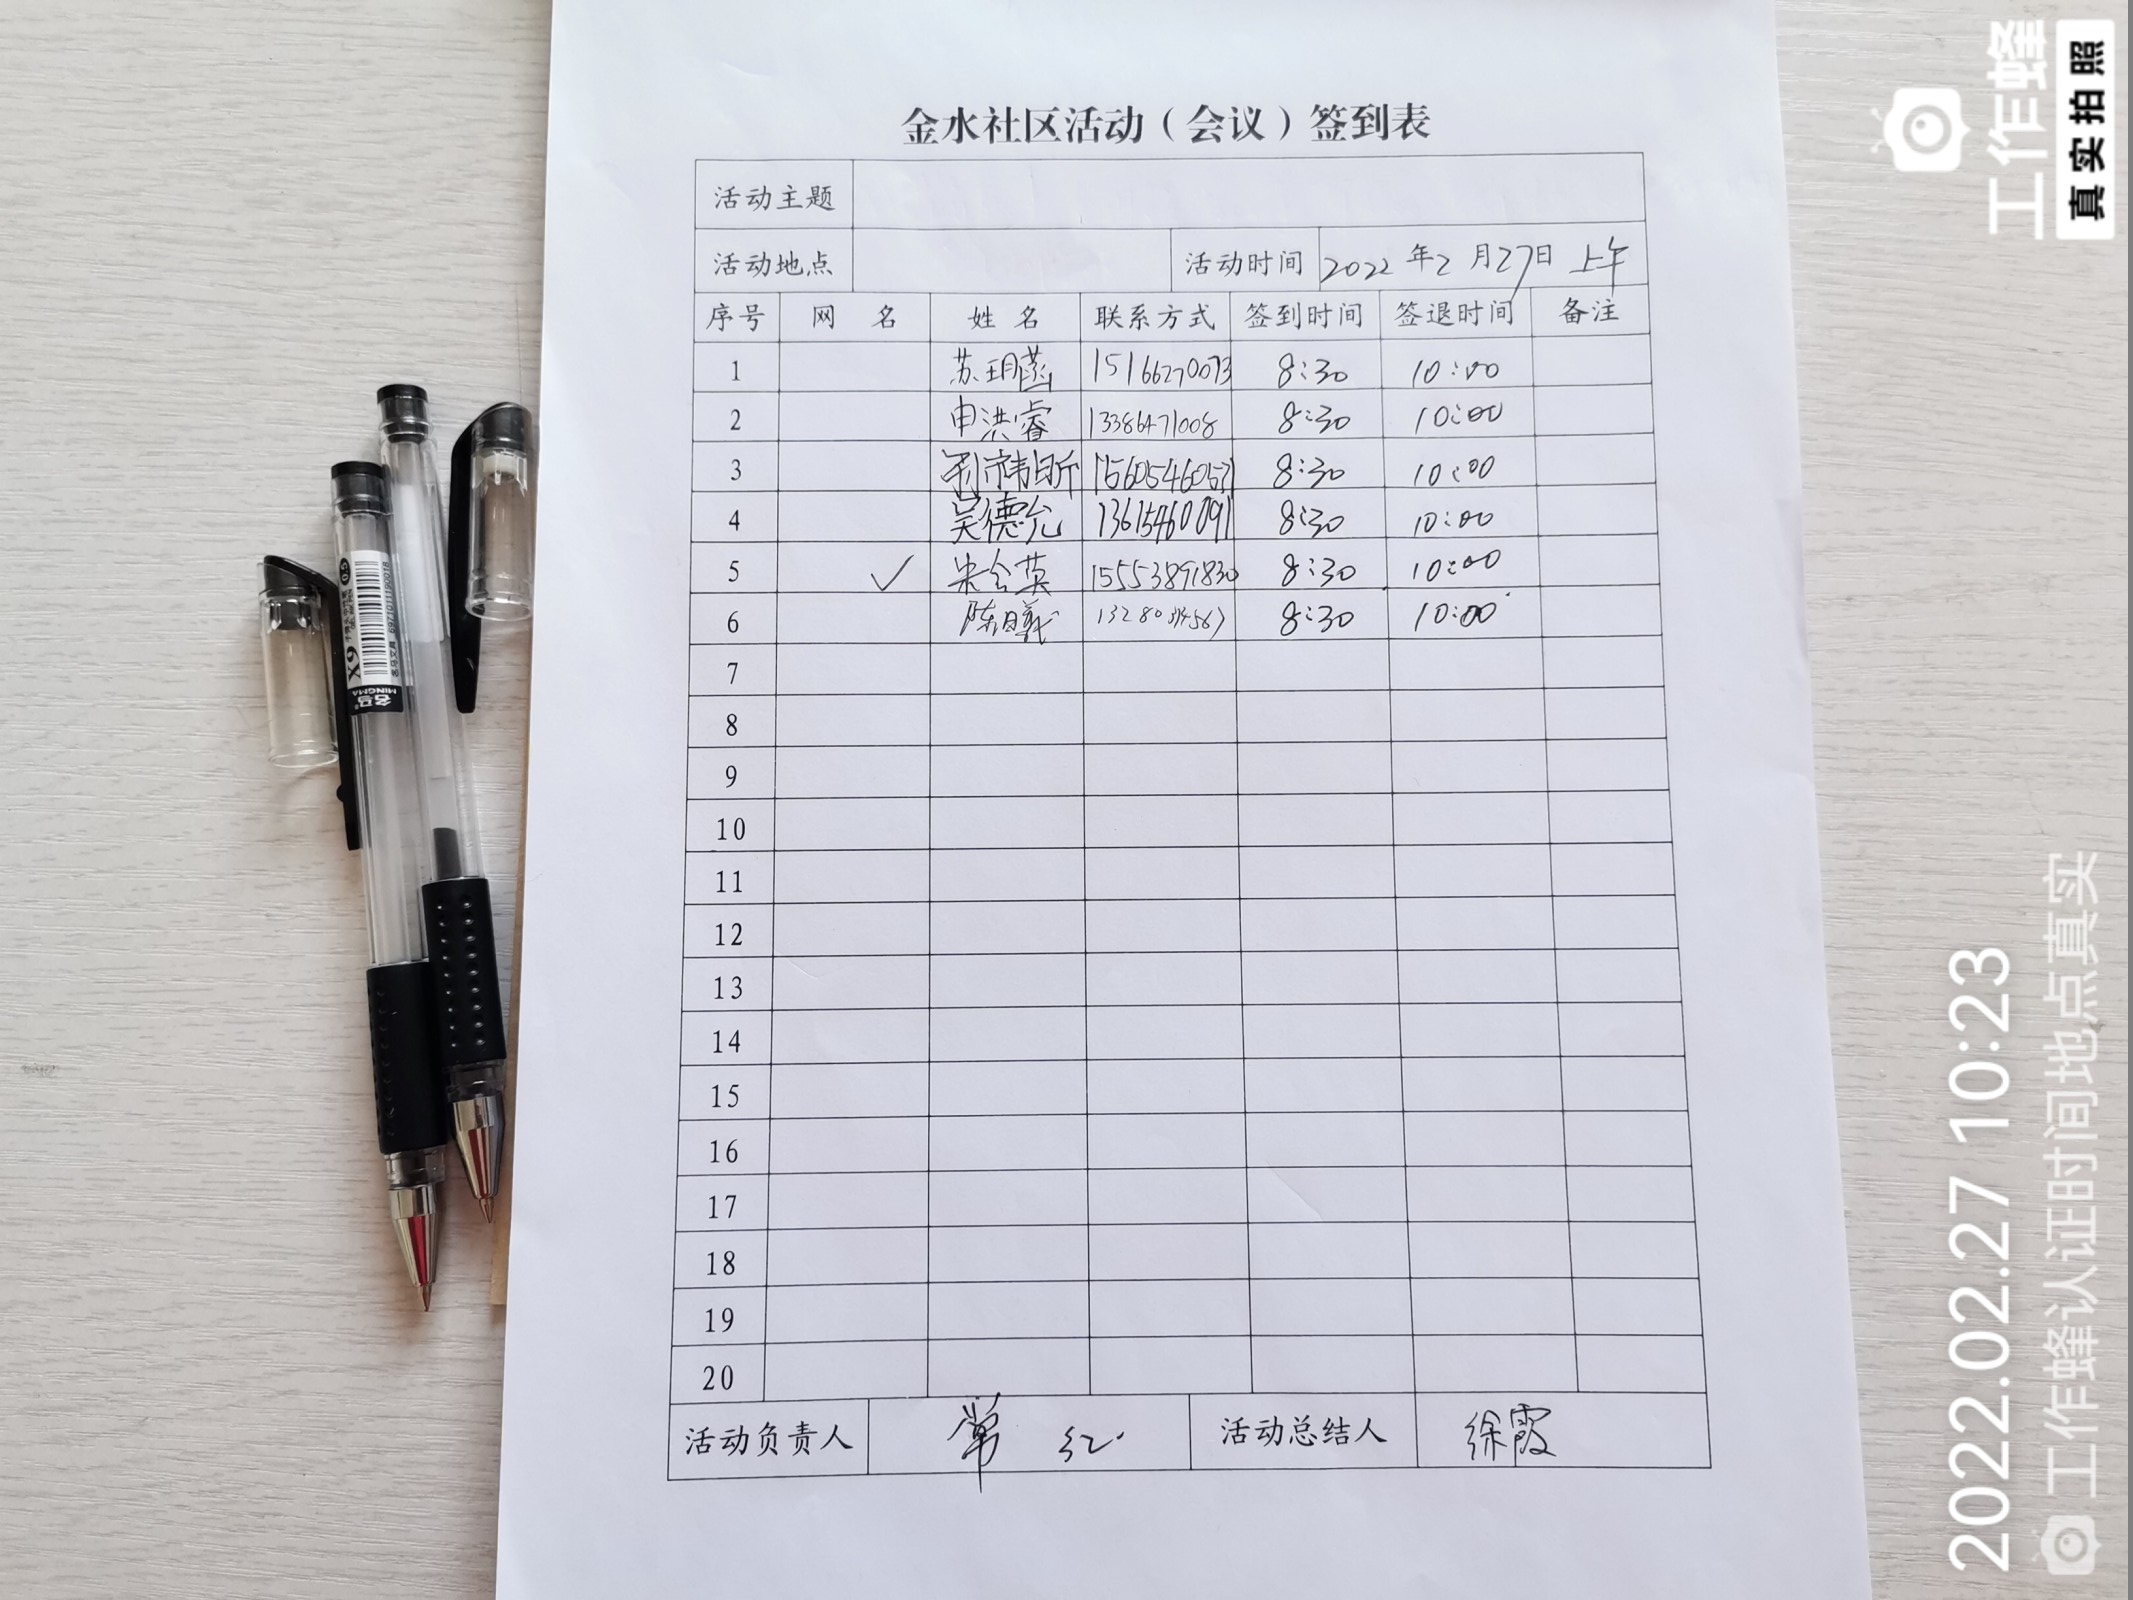 金水社区活动（会议）签到表
活动主题
活动地点 活动时间 2022年2月27日 上午
序号 网 名 姓 名 联系方式 签到时间 签退时间 备注
1 苏玥菡 15166270073 8:30 10:00
2 申洪睿 13386471008 8:30 10:00
3 刘祎昕 15605460571 8:30 10:00
4 吴德允 13615460091 8:30 10:00
5 ✓ 宋会英 15553891830 8:30 10:00
6 陈曦 8:30 10:00
7
8
9
10
11
12
13
14
15
16
17
18
19
20
活动负责人 常红 活动总结人 徐霞
X9
0.5
6971011190018
名马
MINGMA
工作蜂
真实拍照
2022.02.27 10:23
工作蜂认证时间地点真实